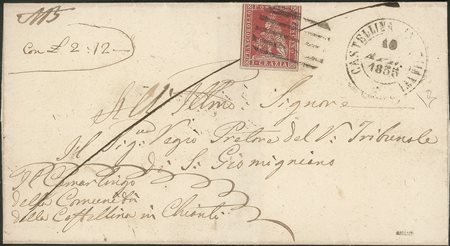 Con £ 2:12
FRANCOBOLLO POSTALE TOSCANO
1 CRAZIA
CASTELLINA IN CHIANTI
10
1855
All' Illmo Signore
Il Sig.re Regio Pretore del R. Tribunale
di S. Gismignano
Il Camarlingo
della Comunità
della Castellina in Chianti